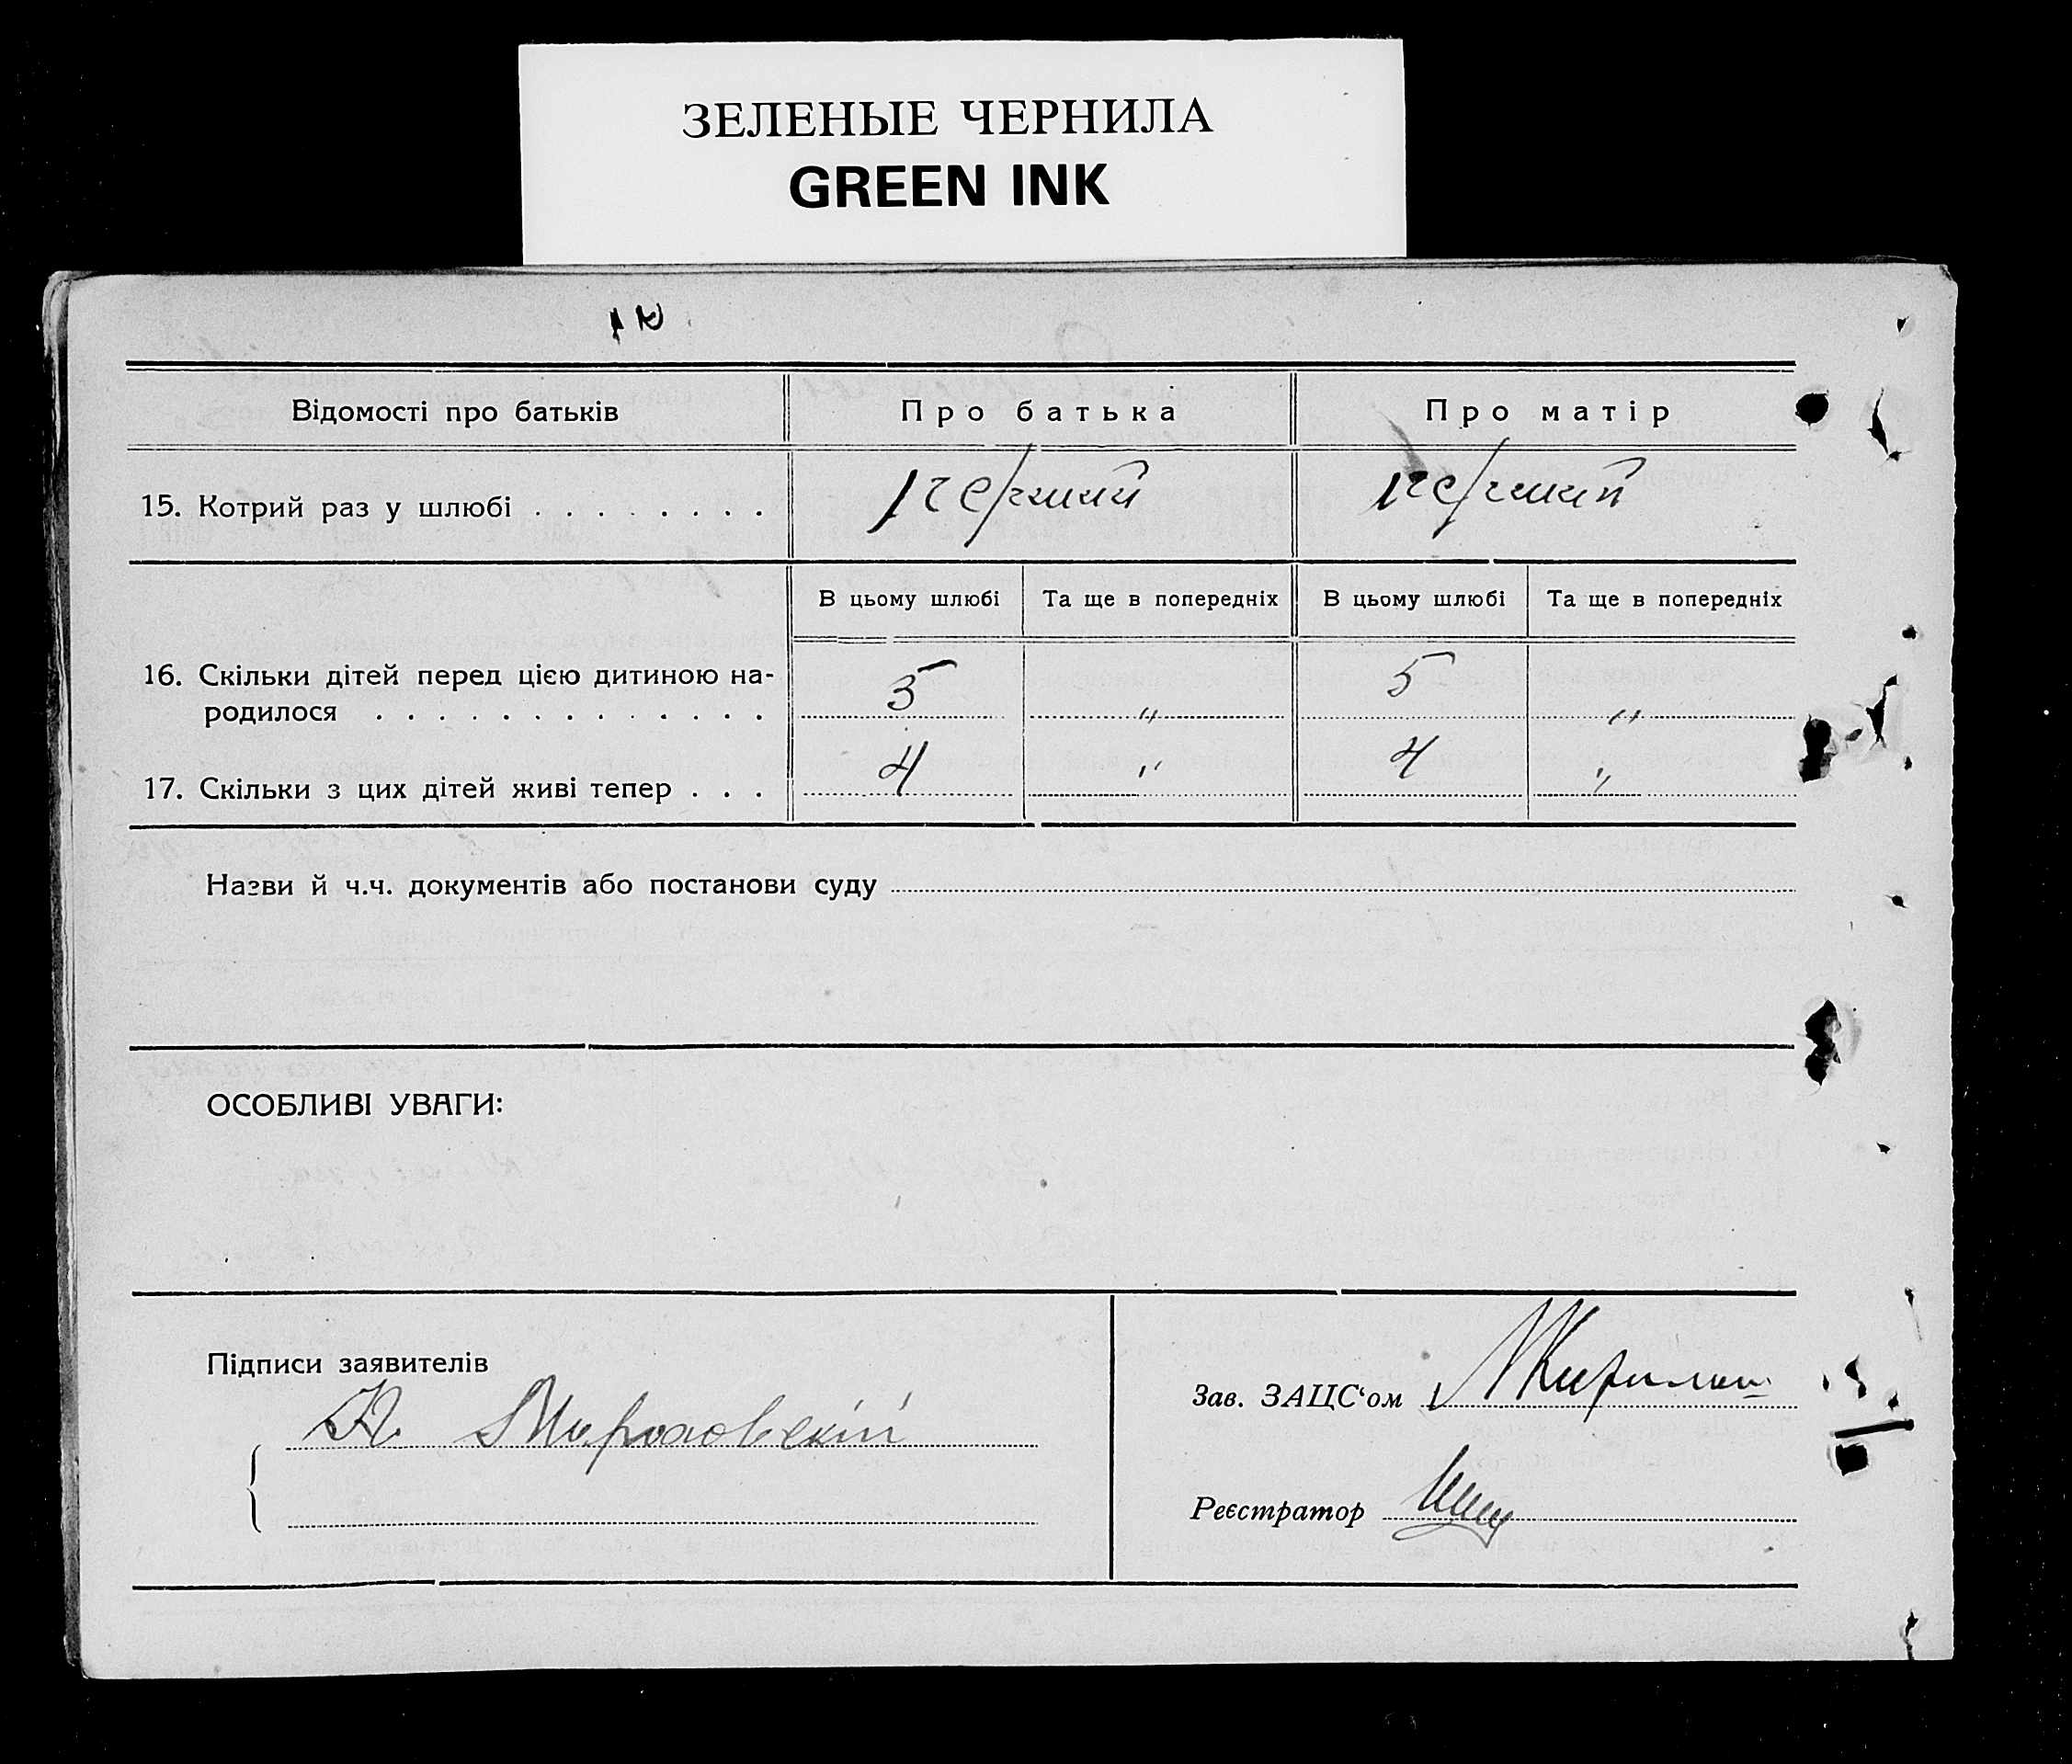 ЗЕЛЕНЫЕ ЧЕРНИЛА
GREEN INK
Відомості про батьків Про батька Про матір
15. Котрий раз у шлюбі . . . . . . . . перший перший
В цьому шлюбі Та ще в попередніх В цьому шлюбі Та ще в попередніх
16. Скільки дітей перед цією дитиною на-
родилося . . . . . . . . . . . . . . 5 " 5 "
17. Скільки з цих дітей живі тепер . . . 4 " 4 "
Назви й ч.ч. документів або постанови суду
ОСОБЛИВІ УВАГИ:
Підписи заявителів
Зав. ЗАЦС'ом
Реєстратор